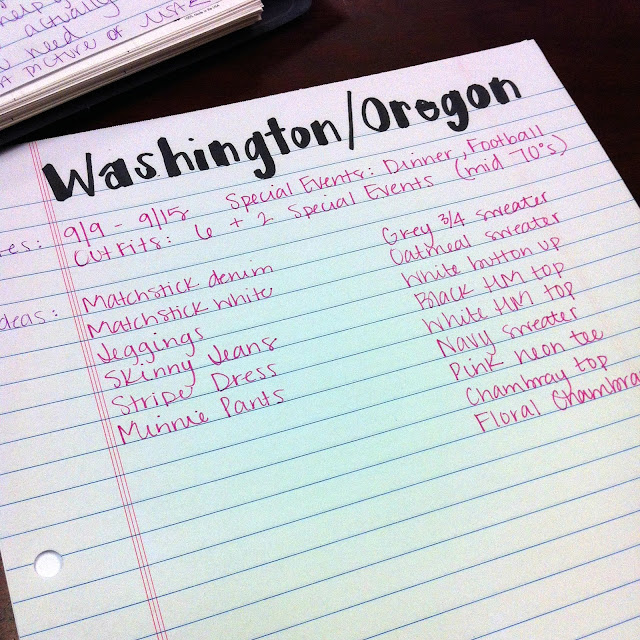 actually
need
A picture of
Washington/Oregon
es: 9/9 - 9/15 Special Events: Dinner, Football
Outfits: 6 + 2 Special Events (mid 70°s)
deas: Matchstick denim
Matchstick white
Jeggings
Skinny Jeans
Stripe Dress
Minnie Pants
Grey 3/4 sweater
Oatmeal sweater
White button up
Black HM top
White HM top
Navy sweater
Pink neon tee
Chambray top
Floral Chambray